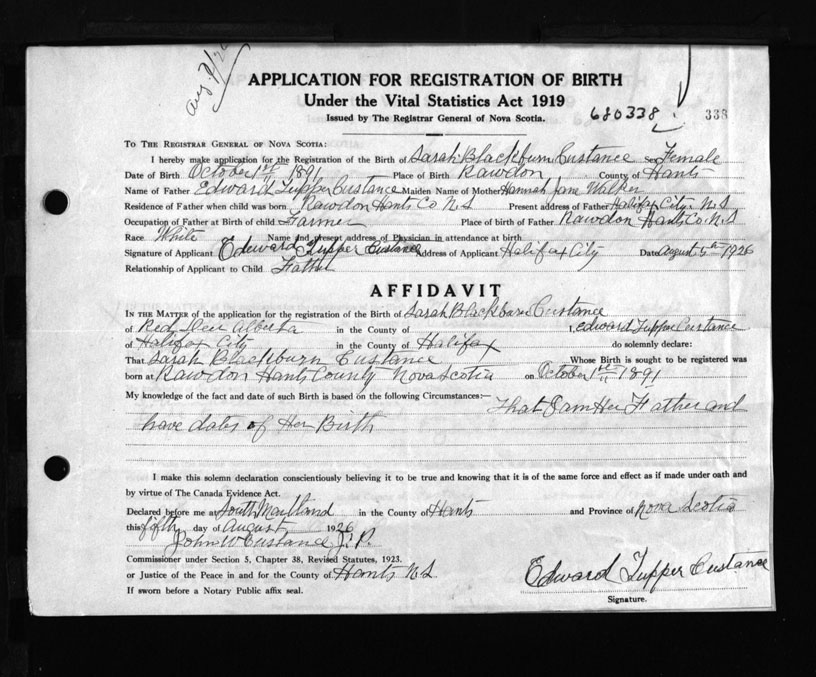 Aug 9/26
APPLICATION FOR REGISTRATION OF BIRTH
Under the Vital Statistics Act 1919
Issued by The Registrar General of Nova Scotia.
680338
338
TO THE REGISTRAR GENERAL OF NOVA SCOTIA:
I hereby make application for the Registration of the Birth of Sarah Blackburn Custance Sex Female
Date of Birth October 1st 1891 Place of Birth Rawdon County of Hants
Name of Father Edward Tupper Custance Maiden Name of Mother Hannah Jane Walker
Residence of Father when child was born Rawdon Hants Co N.S Present address of Father Halifax City N.S
Occupation of Father at Birth of child Farmer Place of birth of Father Rawdon Hants Co. N.S
Race White Name and present address of Physician in attendance at birth
Signature of Applicant Edward Tupper Custance Address of Applicant Halifax City Date August 5th 1926
Relationship of Applicant to Child Father
AFFIDAVIT
IN THE MATTER of the application for the registration of the Birth of Sarah Blackburn Custance
of Red Deer Alberta in the County of I, Edward Tupper Custance
of Halifax City in the County of Halifax do solemnly declare:
That Sarah Blackburn Custance Whose Birth is sought to be registered was
born at Rawdon Hants County Nova Scotia on October 1st 1891
My knowledge of the fact and date of such Birth is based on the following Circumstances:— That I am Her Father and
have dates of Her Birth
I make this solemn declaration conscientiously believing it to be true and knowing that it is of the same force and effect as if made under oath and
by virtue of The Canada Evidence Act.
Declared before me at South Maitland in the County of Hants and Province of Nova Scotia
this fifth day of August 1926
John W Custance J.P.
Commissioner under Section 5, Chapter 38, Revised Statutes, 1923.
or Justice of the Peace in and for the County of Hants N.S
If sworn before a Notary Public affix seal.
Edward Tupper Custance
Signature.